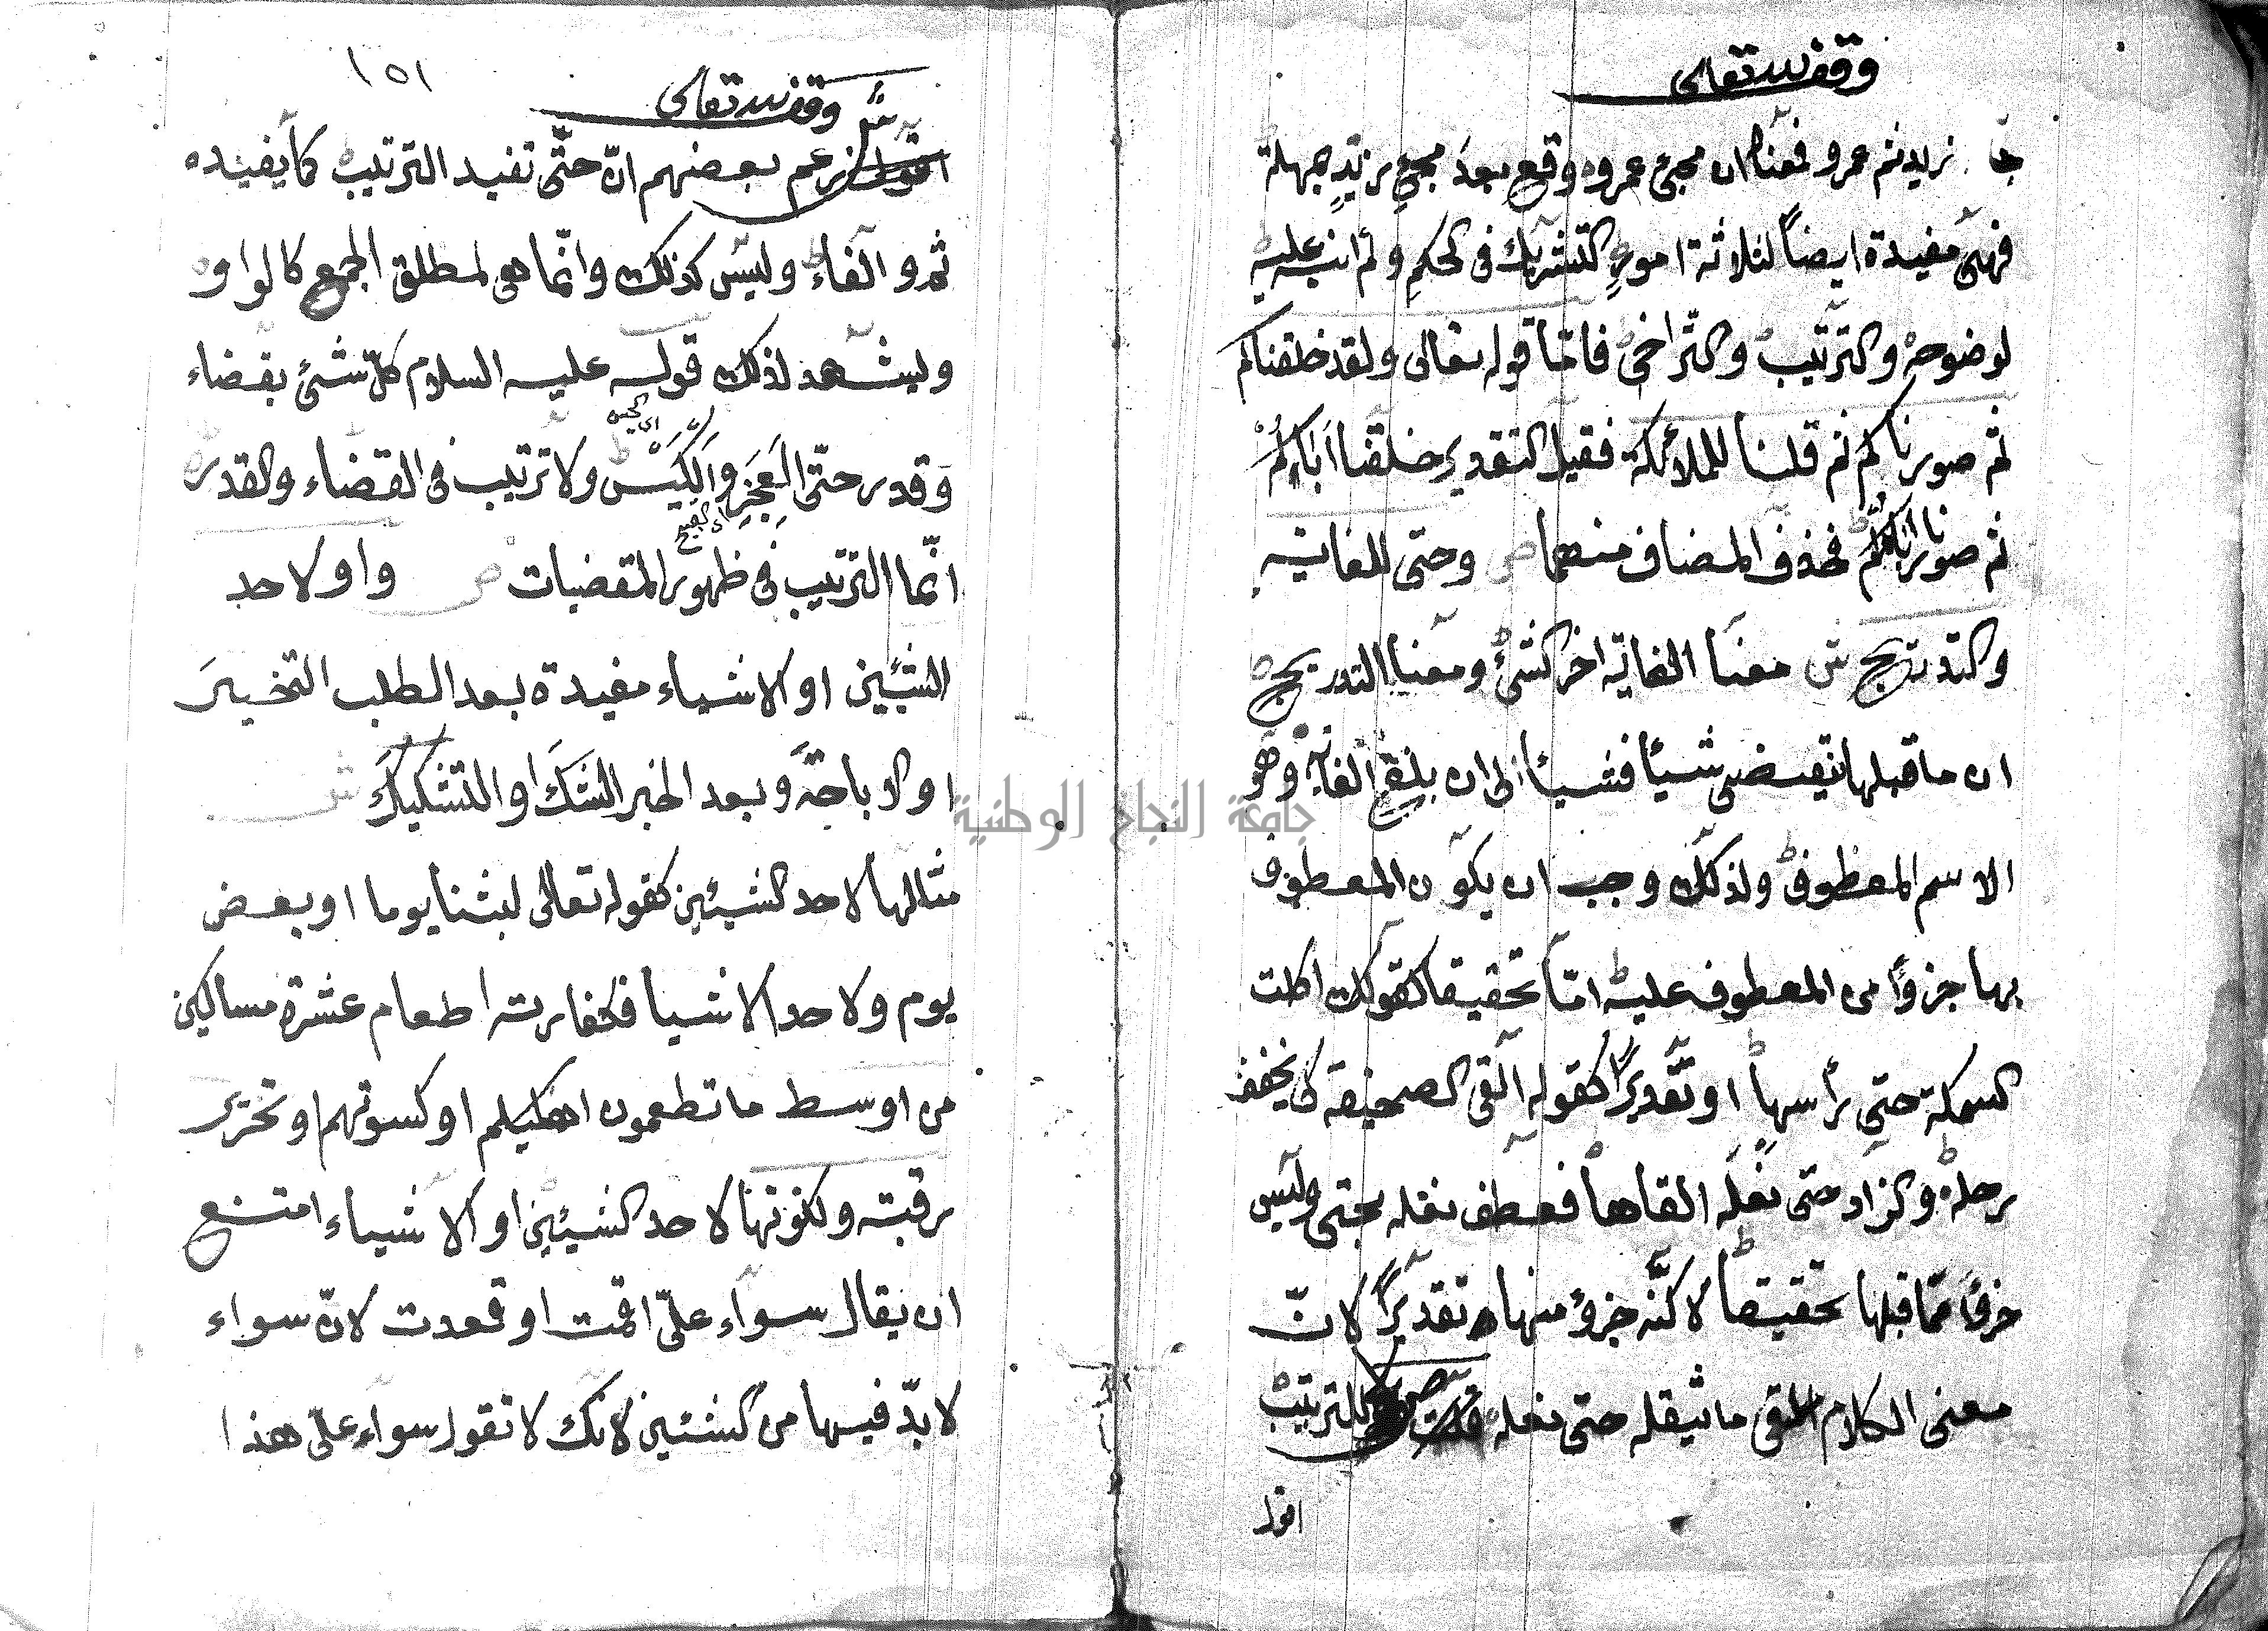 وقف لله تعالى
جا زيد ثم عمرو فمعناه ان مجئ عمرو وقع بعد مجئ زيد بمهلة
فهى مفيدة ايضاً لثلاثة امور التشريك فى الحكم ولم انبه عليه
لوضوحه والترتيب والتراخى فاما قوله تعالى ولقد خلقناكم
ثم صورناكم ثم قلنا للملائكة فقيل التقدير خلقنا اباءكم
ثم صورنا اباءكم فحذف المضاف منهما ص وحتى للغاية
والتدريج ش معنا الغاية اخر الشئ ومعنا التدريج
ان ما قبلها تقضى شيئا فشيئا الى ان يبلغ الغاية وهو
الاسم المعطوف ولذلك وجب ان يكون المعطوف
بها جزوًا من المعطوف عليه امّا تحقيقا كقولك اكلت
السمكة حتى رأسها او تقديرًا كقوله القى الصحيفة كى يخفف
رحله والزاد حتى نعله القاها فعطف نعله بحتى وليس
جزوًا مما قبلها تحقيقاً لاكنّه جزؤ منها تقديرًا لانّ
معنى الكلام القى ما يثقله حتى نعله ص لا للترتيب
اقول
١٥١
وقف لله تعالى
ش زعم بعضهم انّ حتّى تفيد الترتيب كما يفيده
ثم والفاء وليس كذلك وانّما هى لمطلق الجمع كالواو
ويشهد لذلك قوله عليه السلام كلّ شئ بقضاء
اى الحسن
وقدر حتّى العجز والكيس ولا ترتيب فى القضاء والقدر
اى القبيح
انّما الترتيب فى ظهور المقضيات ص واو لاحد
الشيئين او الاشياء مفيدة بعد الطلب التخيير
او الاباحة وبعد الخبر الشك او التشكيك ش
مثالها لاحد الشيئين كقوله تعالى لبثنا يوما او بعض
يوم ولاحد الاشيا فكفارته اطعام عشرة مساكين
من اوسط ما تطعمون اهليكم او كسوتهم او تحرير
رقبة ولكونها لاحد الشيئين او الاشياء امتنع
ان يقال سواء علىّ اقمت او قعدت لانّ سواء
لا بدّ فيها من الشيئين لانك لا تقول سواء علىّ هذا
جامعة النجاح الوطنية